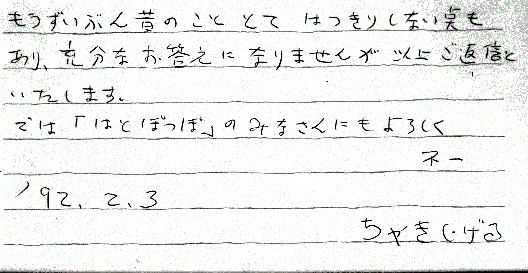 もうずいぶん昔のこととて はっきりしない点も
あり、充分なお答えになりませんが 以上ご返信と
いたします。
では「はとぽっぽ」のみなさんにもよろしく
不一
'92. 2. 3
ちゃきしげる